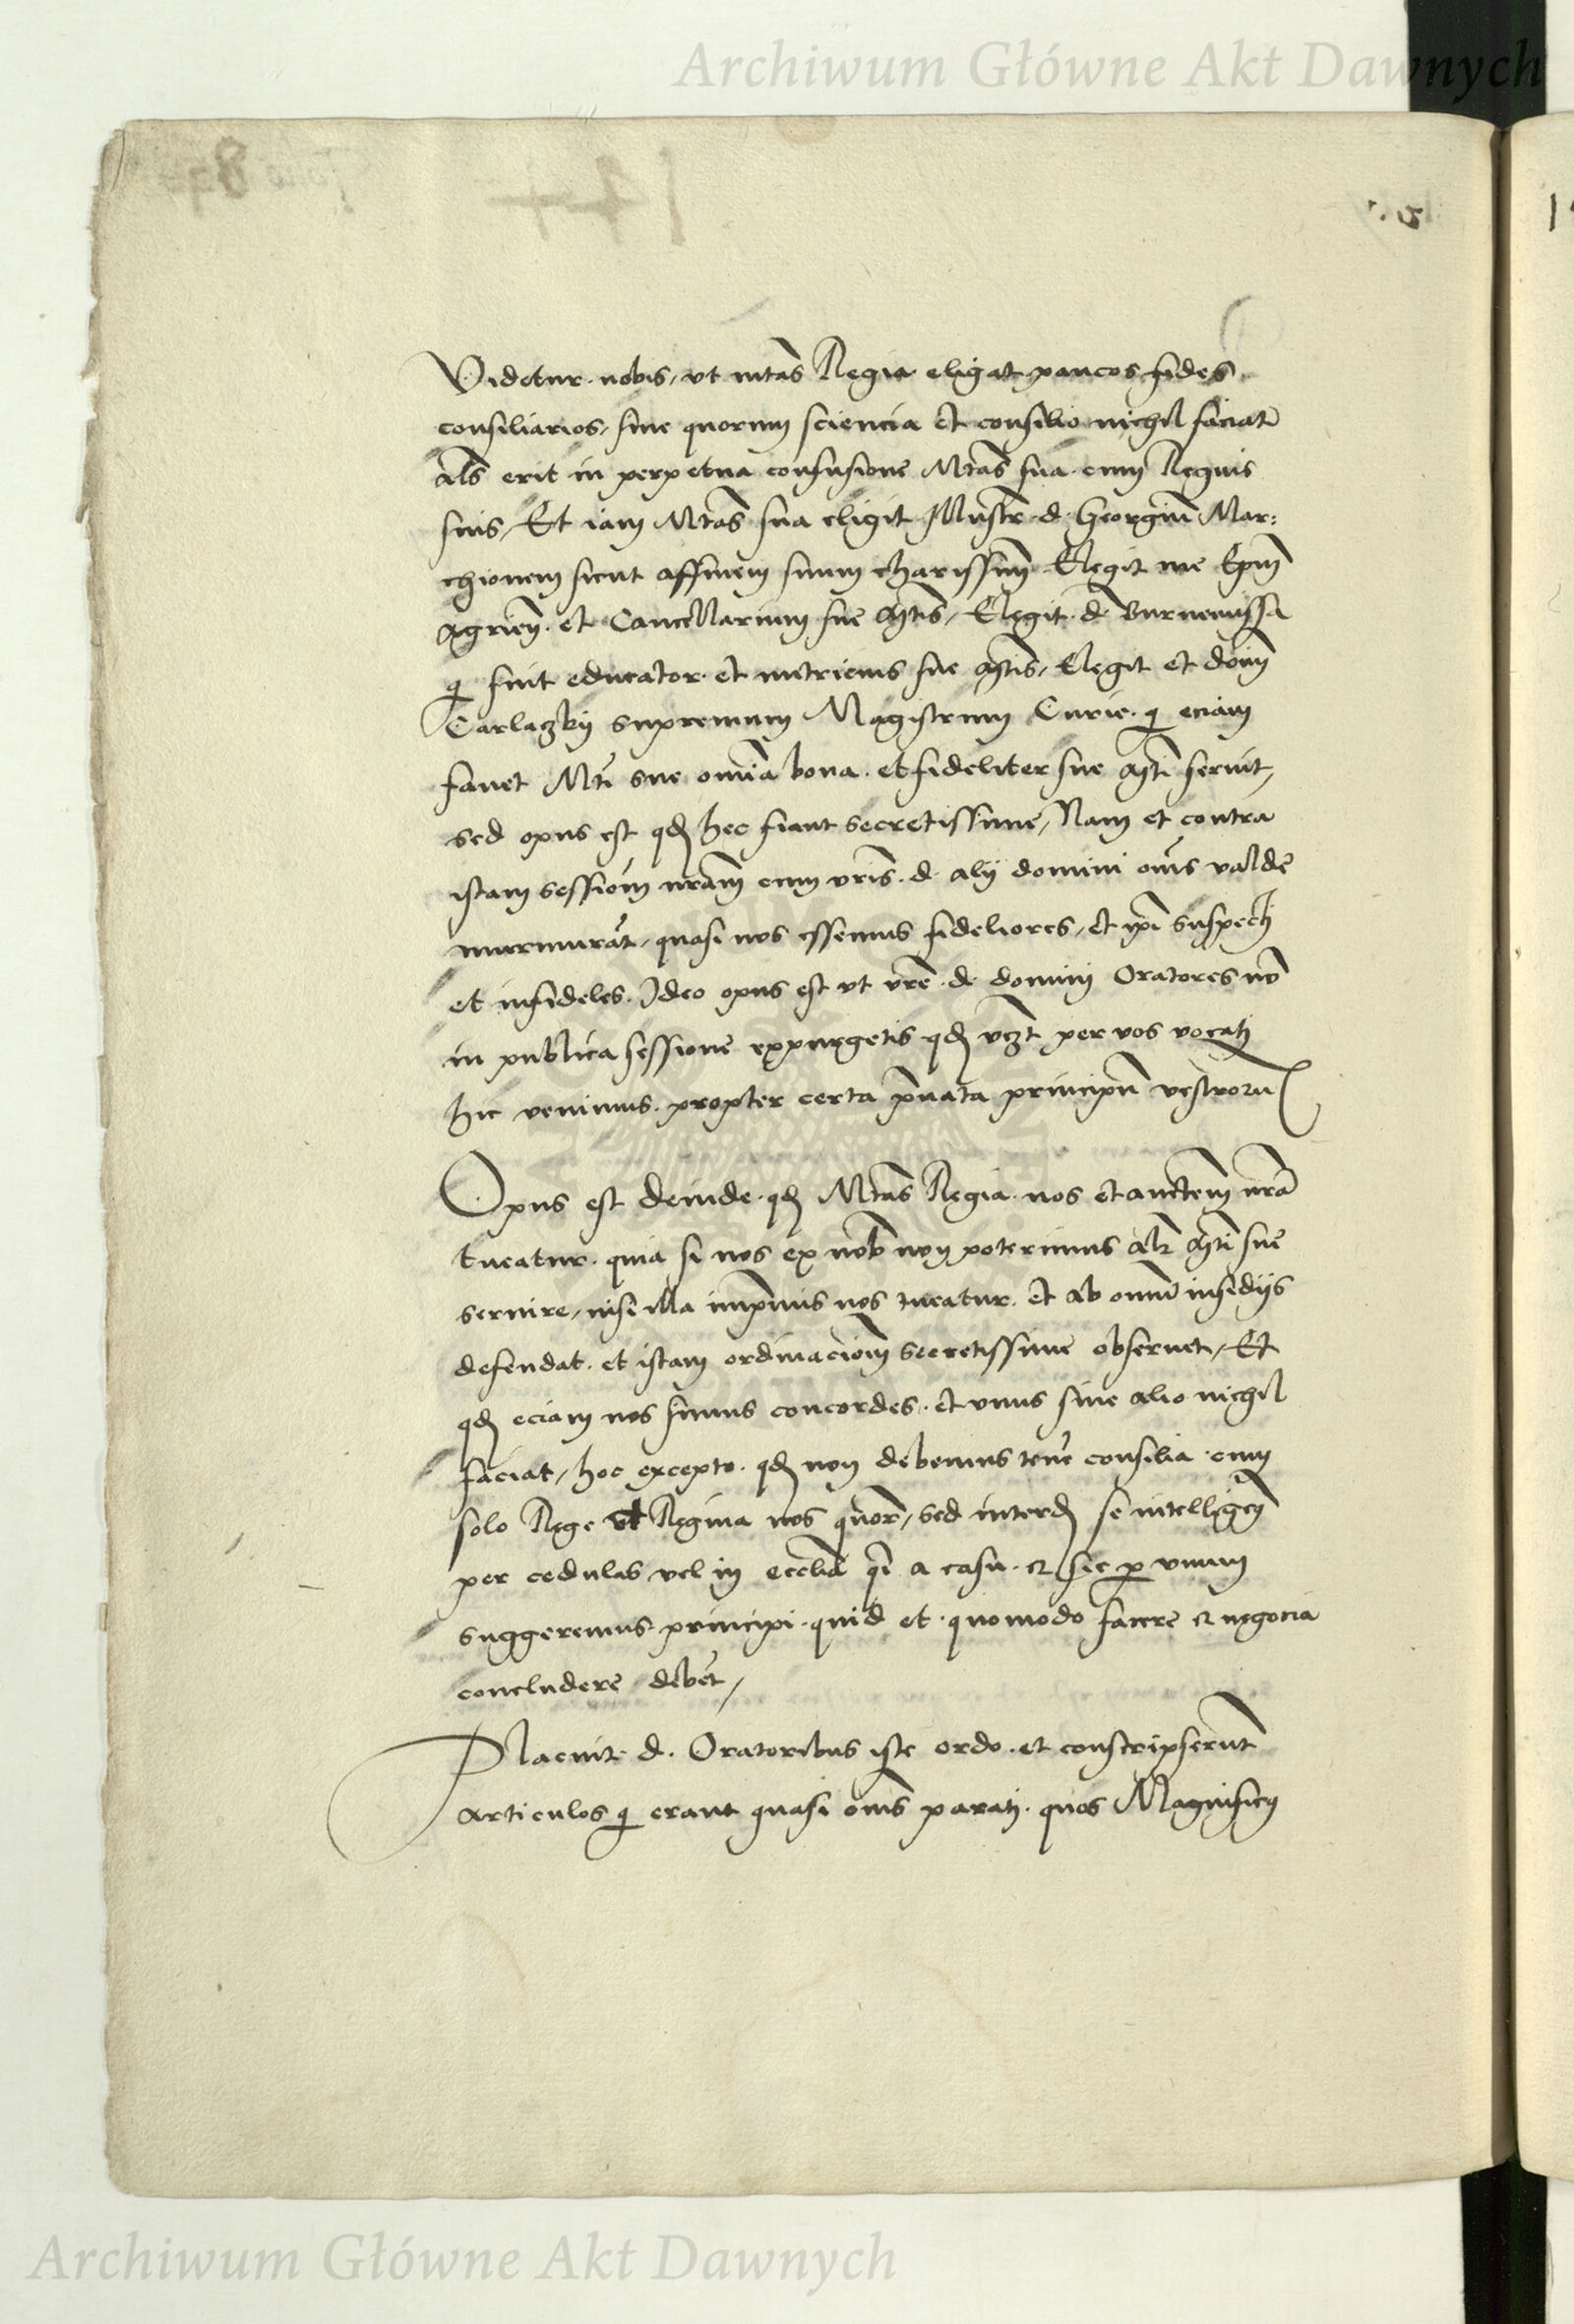 Archiwum Główne Akt Dawnych
Videtur nobis, ut mtas Regia eligat paucos fides
consiliarios, sine quorum sciencia et consilio nichil faciat
als erit in perpetua confusione Mtas sua cum Regnis
suis, Et iam Mtas sua eligit Illustr. d. Georgiu Mar:
chionem sicut affinem suum charissim Elegit me Epm
Agrien. et Cancellarium sue Mtis, Elegit d. Burnemissa
q fuit educator et nutricius sue Mtis, Elegit et dom
Carlaczky supremum Magistrum Curie q eciam
favet Mti sue omia bona et fideliter sue Mti servit,
sed opus est qd hec fiant secretissime, Nam et contra
istam session nram cum vris. d. alij domini oms valde
murmurat, quasi nos essemus fideliores, et ipi suspecti
et infideles. Ideo opus est ut vre d. domini Oratores no
in publica sessione expurgetis qd vzt per vos vocati
huc venimus propter certa pvata principu vestroru
Opus est deinde qd Mtas Regia nos et auctem nra
tueatur. quia si nos ex nob non poterimus alr Mti sue
servire, nisi illa impmis nos tueatur et ab omni insidijs
defendat. et istam ordinaciom secretissime observet, Et
qd eciam nos simus concordes. et unus sine alio nichil
faciat, hoc excepto. qd non debemus tene consilia cum
solo Rege et Regina nos quor, sed interd se intelligen
per cedulas vel in ecclia qi a casu. et sic p unum
suggeremus principi quid et quomodo facere et negocia
concludere debet,
Placuit d. Oratoribus iste ordo et conscripserunt
articulos q erant quasi oms parati quos Magnificus
Archiwum Główne Akt Dawnych